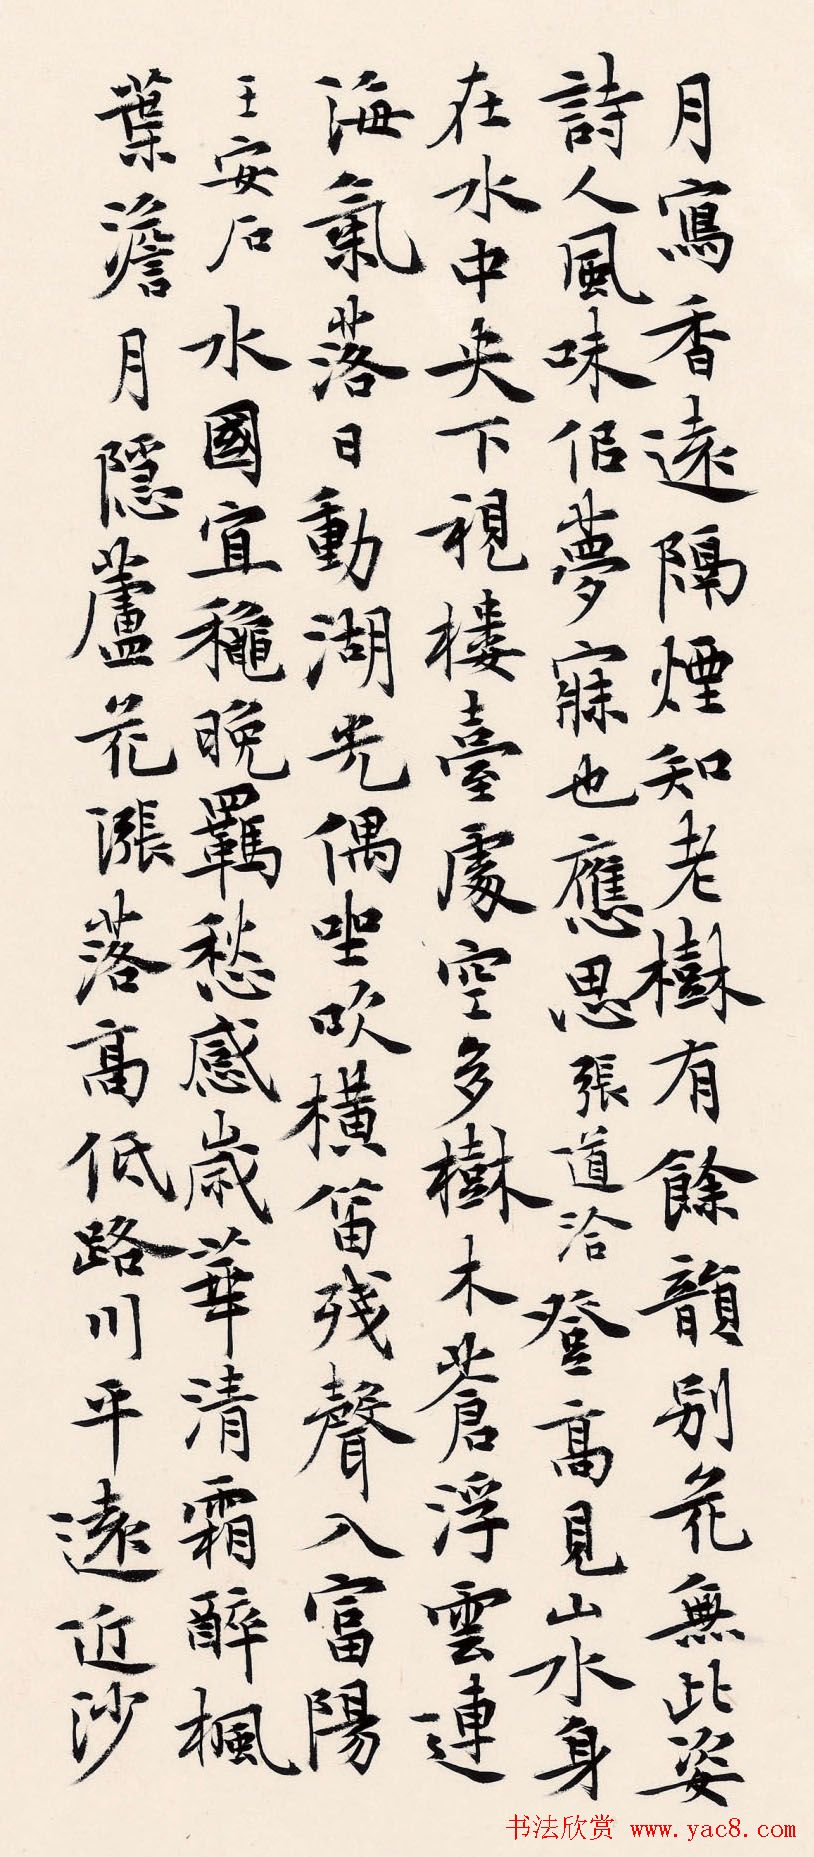 月寫香遠隔煙知老樹有餘韻别花無此姿
詩人風味佀夢寐也應思張道洽登高見山水身
在水中央下視楼臺處空多樹木蒼浮雲連
海氣落日動湖光偶坐吹橫笛残聲入富陽
王安石水國宜穐晚羈愁感歲華清霜醉楓
葉澹月隱蘆花漲落高低路川平遠近沙
书法欣赏 www.yac8.com